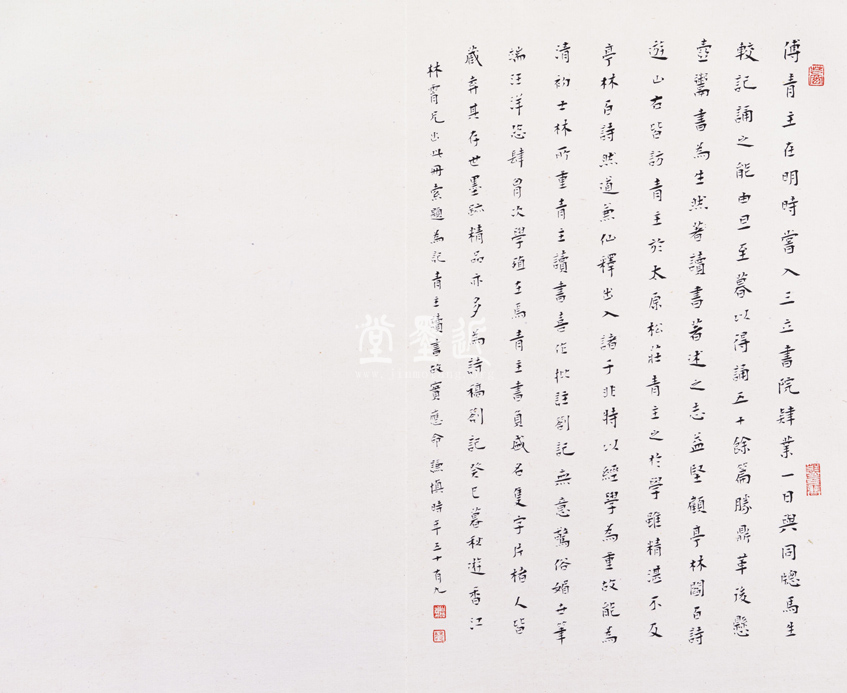 傅青主在明時嘗入三立書院肄業一日與同牕馬生
較記誦之能由旦至暮以得誦五十餘篇勝鼎革後懸
壺鬻書為生然著讀書著述之志益堅顧亭林閻百詩
遊山右皆訪青主於太原松莊青主之於學雖精湛不及
亭林百詩然道兼仙釋出入諸子非特以經學為重故能為
清初士林所重青主讀書喜作批註劄記無意驚俗媚世筆
端汪洋恣肆胷次學殖在焉青主書負盛名隻字片楮人皆
藏弆其存世墨跡精品亦多為詩稿劄記癸巳暮秋遊香江
林霄兄出此冊索題為記青主讀書故實應命謙慎時年三十有九
近墨堂